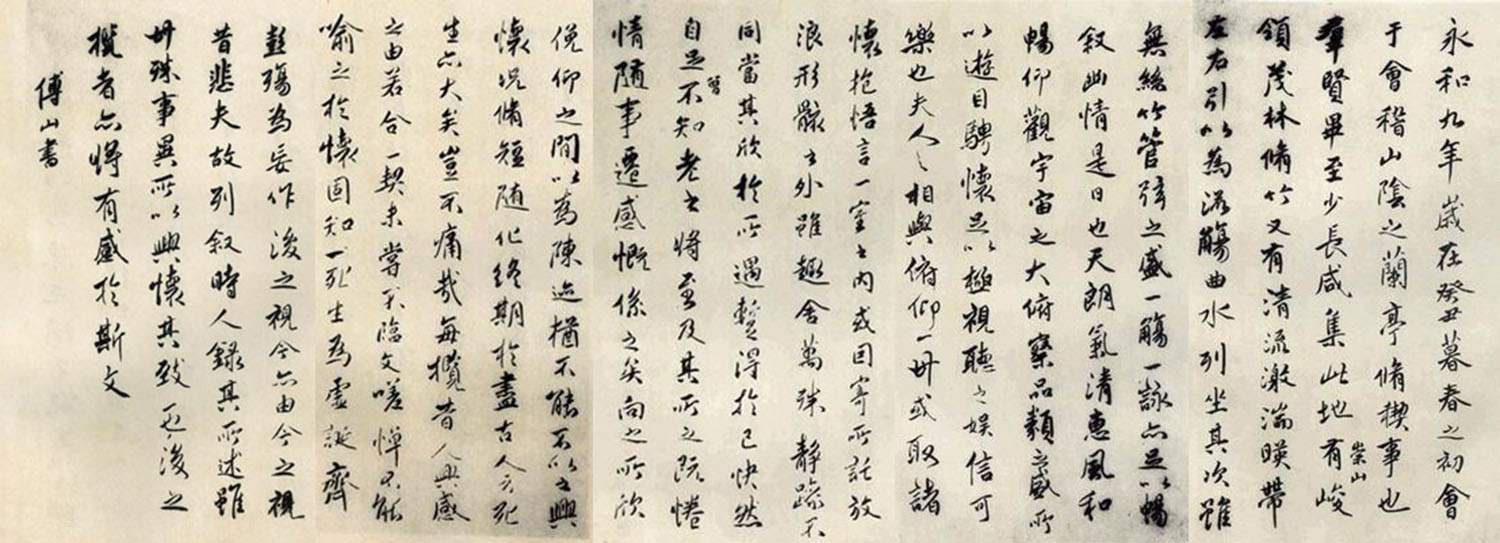 永和九年歲在癸丑暮春之初會
于會稽山陰之蘭亭脩稧事也
羣賢畢至少長咸集此地有崇山峻
領茂林脩竹又有清流激湍暎帶
左右引以為流觴曲水列坐其次雖
無絲竹管弦之盛一觴一詠亦足以暢
叙幽情是日也天朗氣清惠風和
暢仰觀宇宙之大俯察品類之盛所
以遊目騁懷足以極視聽之娛信可
樂也夫人之相與俯仰一世或取諸
懷抱悟言一室之內或因寄所託放
浪形骸之外雖趣舍萬殊靜躁不
同當其欣於所遇暫得於己快然
自足曾不知老之將至及其所之既惓
情隨事遷感慨係之矣向之所欣
俛仰之間以為陳迹猶不能不以之興
懷況脩短隨化終期於盡古人云死
生亦大矣豈不痛哉每攬昔人興感
之由若合一契未嘗不臨文嗟悼不能
喻之於懷固知一死生為虛誕齊
彭殤為妄作後之視今亦由今之視
昔悲夫故列叙時人錄其所述雖
世殊事異所以興懷其致一也後之
攬者亦將有感於斯文
傅山書